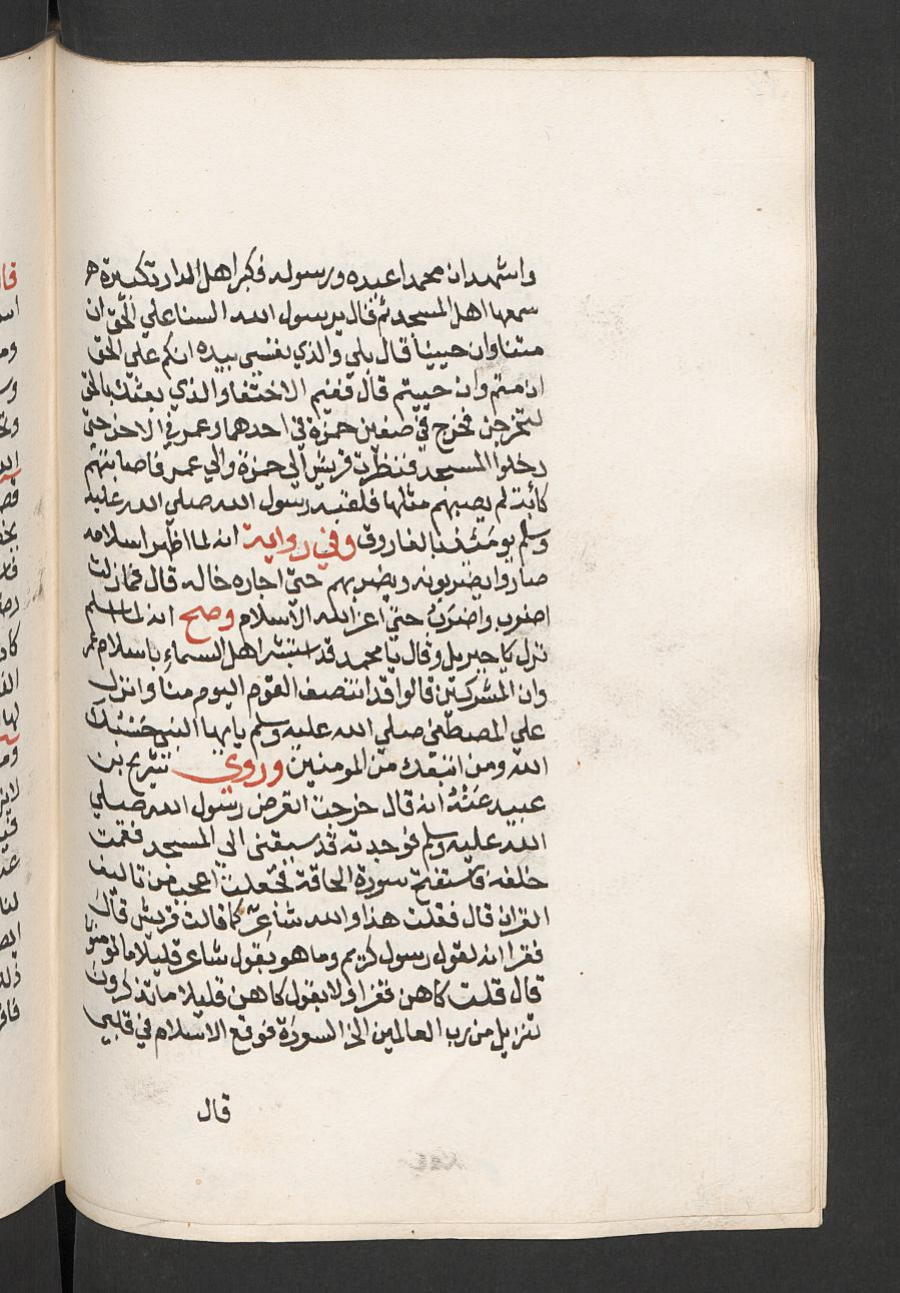 واشهد ان محمدا عبده ورسوله فكبر اهل الدار تكبيرة
سمعها اهل المسجد ثم قال يرسول الله السنا علي الحق ان
متنا وان حيينا قال بلي والذي نفسي بيده انكم علي الحق
ان متم وان حييتم قال ففيم الاختفا والذي بعثك بالحق
لتخرجن فخرج في صفين حمزة في احدهما وعمر في الاخر حتي
دخلوا المسجد فنظرت قريش الي حمزة والي عمر فاصابتهم
كأبة لم يصبهم مثلها فلقبه رسول الله صلي الله عليه
وسلم يومئذ بالفاروق وفي رواية انه لما اظهر اسلامه
صاروا يضربونه ويضربهم حتي اجاره خاله قال فمازلت
اضرب واضرب حتي اعز الله الاسلام وصح انه لما اسلم
نزل جبريل وقال يا محمد قد استبشر اهل السماء باسلام عمر
وان المشركين قالوا قد انتصف القوم اليوم منا وانزل
علي المصطفي صلي الله عليه وسلم يايها النبي حسبك
الله ومن اتبعك من المومنين وروي شريح بن
عبيد عنه انه قال خرجت اتعرض رسول الله صلي
الله عليه وسلم فوجدته قد سبقني الي المسجد فقمت
خلفه فاستفتح سورة الحاقة فجعلت اعجب من تاليف
القران قال فقلت هذا والله شاعر كما قالت قريش قال
فقرا انه لقول رسول كريم وما هو بقول شاعر قليلا ما تومنون
قال قلت كاهن فقرا ولا بقول كاهن قليلا ما تذكرون
تنزيل من رب العالمين الخ السورة فوقع الاسلام في قلبي
قال